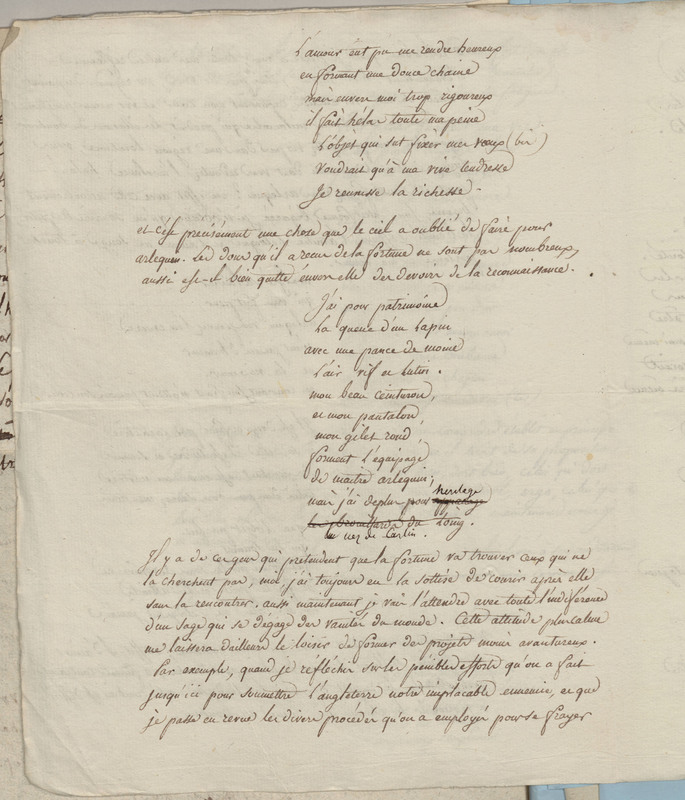 L'amour eut pu me rendre heureux
en formant une douce chaine
mais envers moi trop rigoureux
il fait hélas toute ma peine
L'objet qui sut fixer mes vœux (bis)
voudrait qu'à ma vive tendresse
Je reunisse la richesse.
et c'est precisément une chose que le ciel a oublié de faire pour
arlequin. Les dons qu'il a recus de la fortune ne sont pas nombreux,
aussi est-il bien quitte envers elle des devoirs de la reconnaissance.
J'ai pour patrimoine
La queue d'un Lapin
avec une pance de moine
L'air vif et lutin.
mon beau ceinturon,
et mon pantalon,
mon gilet rond,
forment l'équipage
de maitre arlequin;
mais j'ai de plus pour heritage
les brouillards du Loing.
un nez de Carlin.
Il y a de ces gens qui prétendent que la fortune va trouver ceux qui ne
la cherchent pas, moi, j'ai toujours eu la sottise de courir après elle
sans la rencontrer. aussi maintenant je vais l'attendre avec toute l'indifférence
d'un sage qui se dégage des vanités du monde. Cette attitude plus calme
me laissera d'ailleurs le loisir de former des projets moins avantureux.
Par exemple, quand je reflechis sur les penibles efforts qu'on a fait
jusqu'ici pour soumettre l'angleterre notre implacable ennemie, et que
je passe en revue les divers procédés qu'on a employés pour se frayer